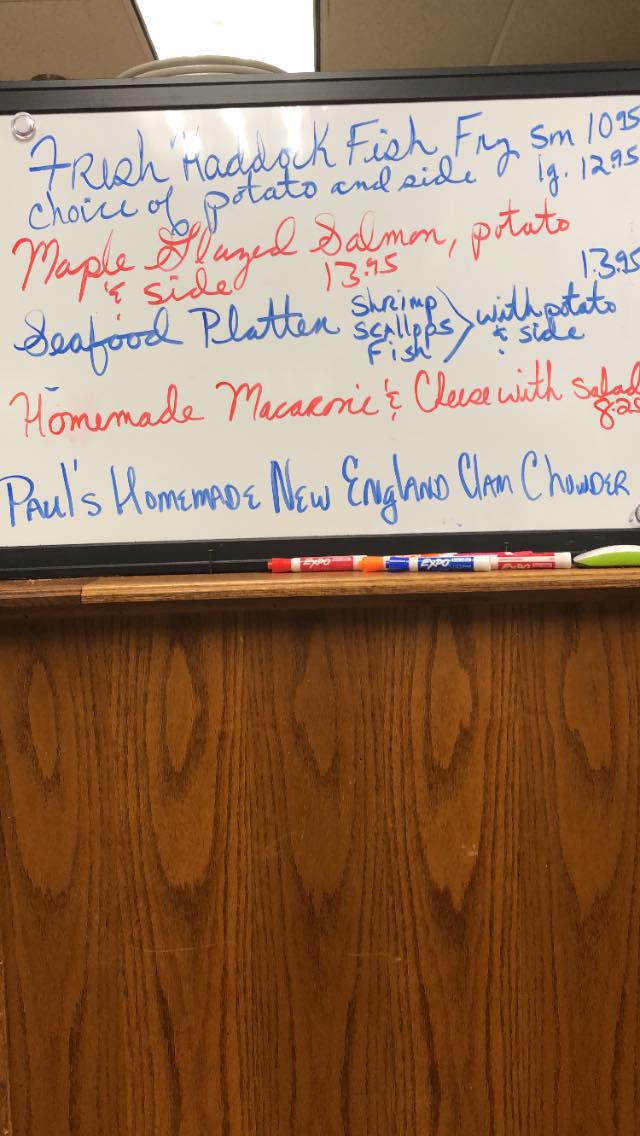 Fresh Haddock Fish Fry Sm 10.95
choice of potato and side lg. 12.95
Maple Glazed Salmon, potato
& side 13.95
13.95
Seafood Platter Shrimp scallops Fish with potato & side
Homemade Macaroni & Cheese with Salad
8.25
Paul's Homemade New England Clam Chowder
EXPO EXPO